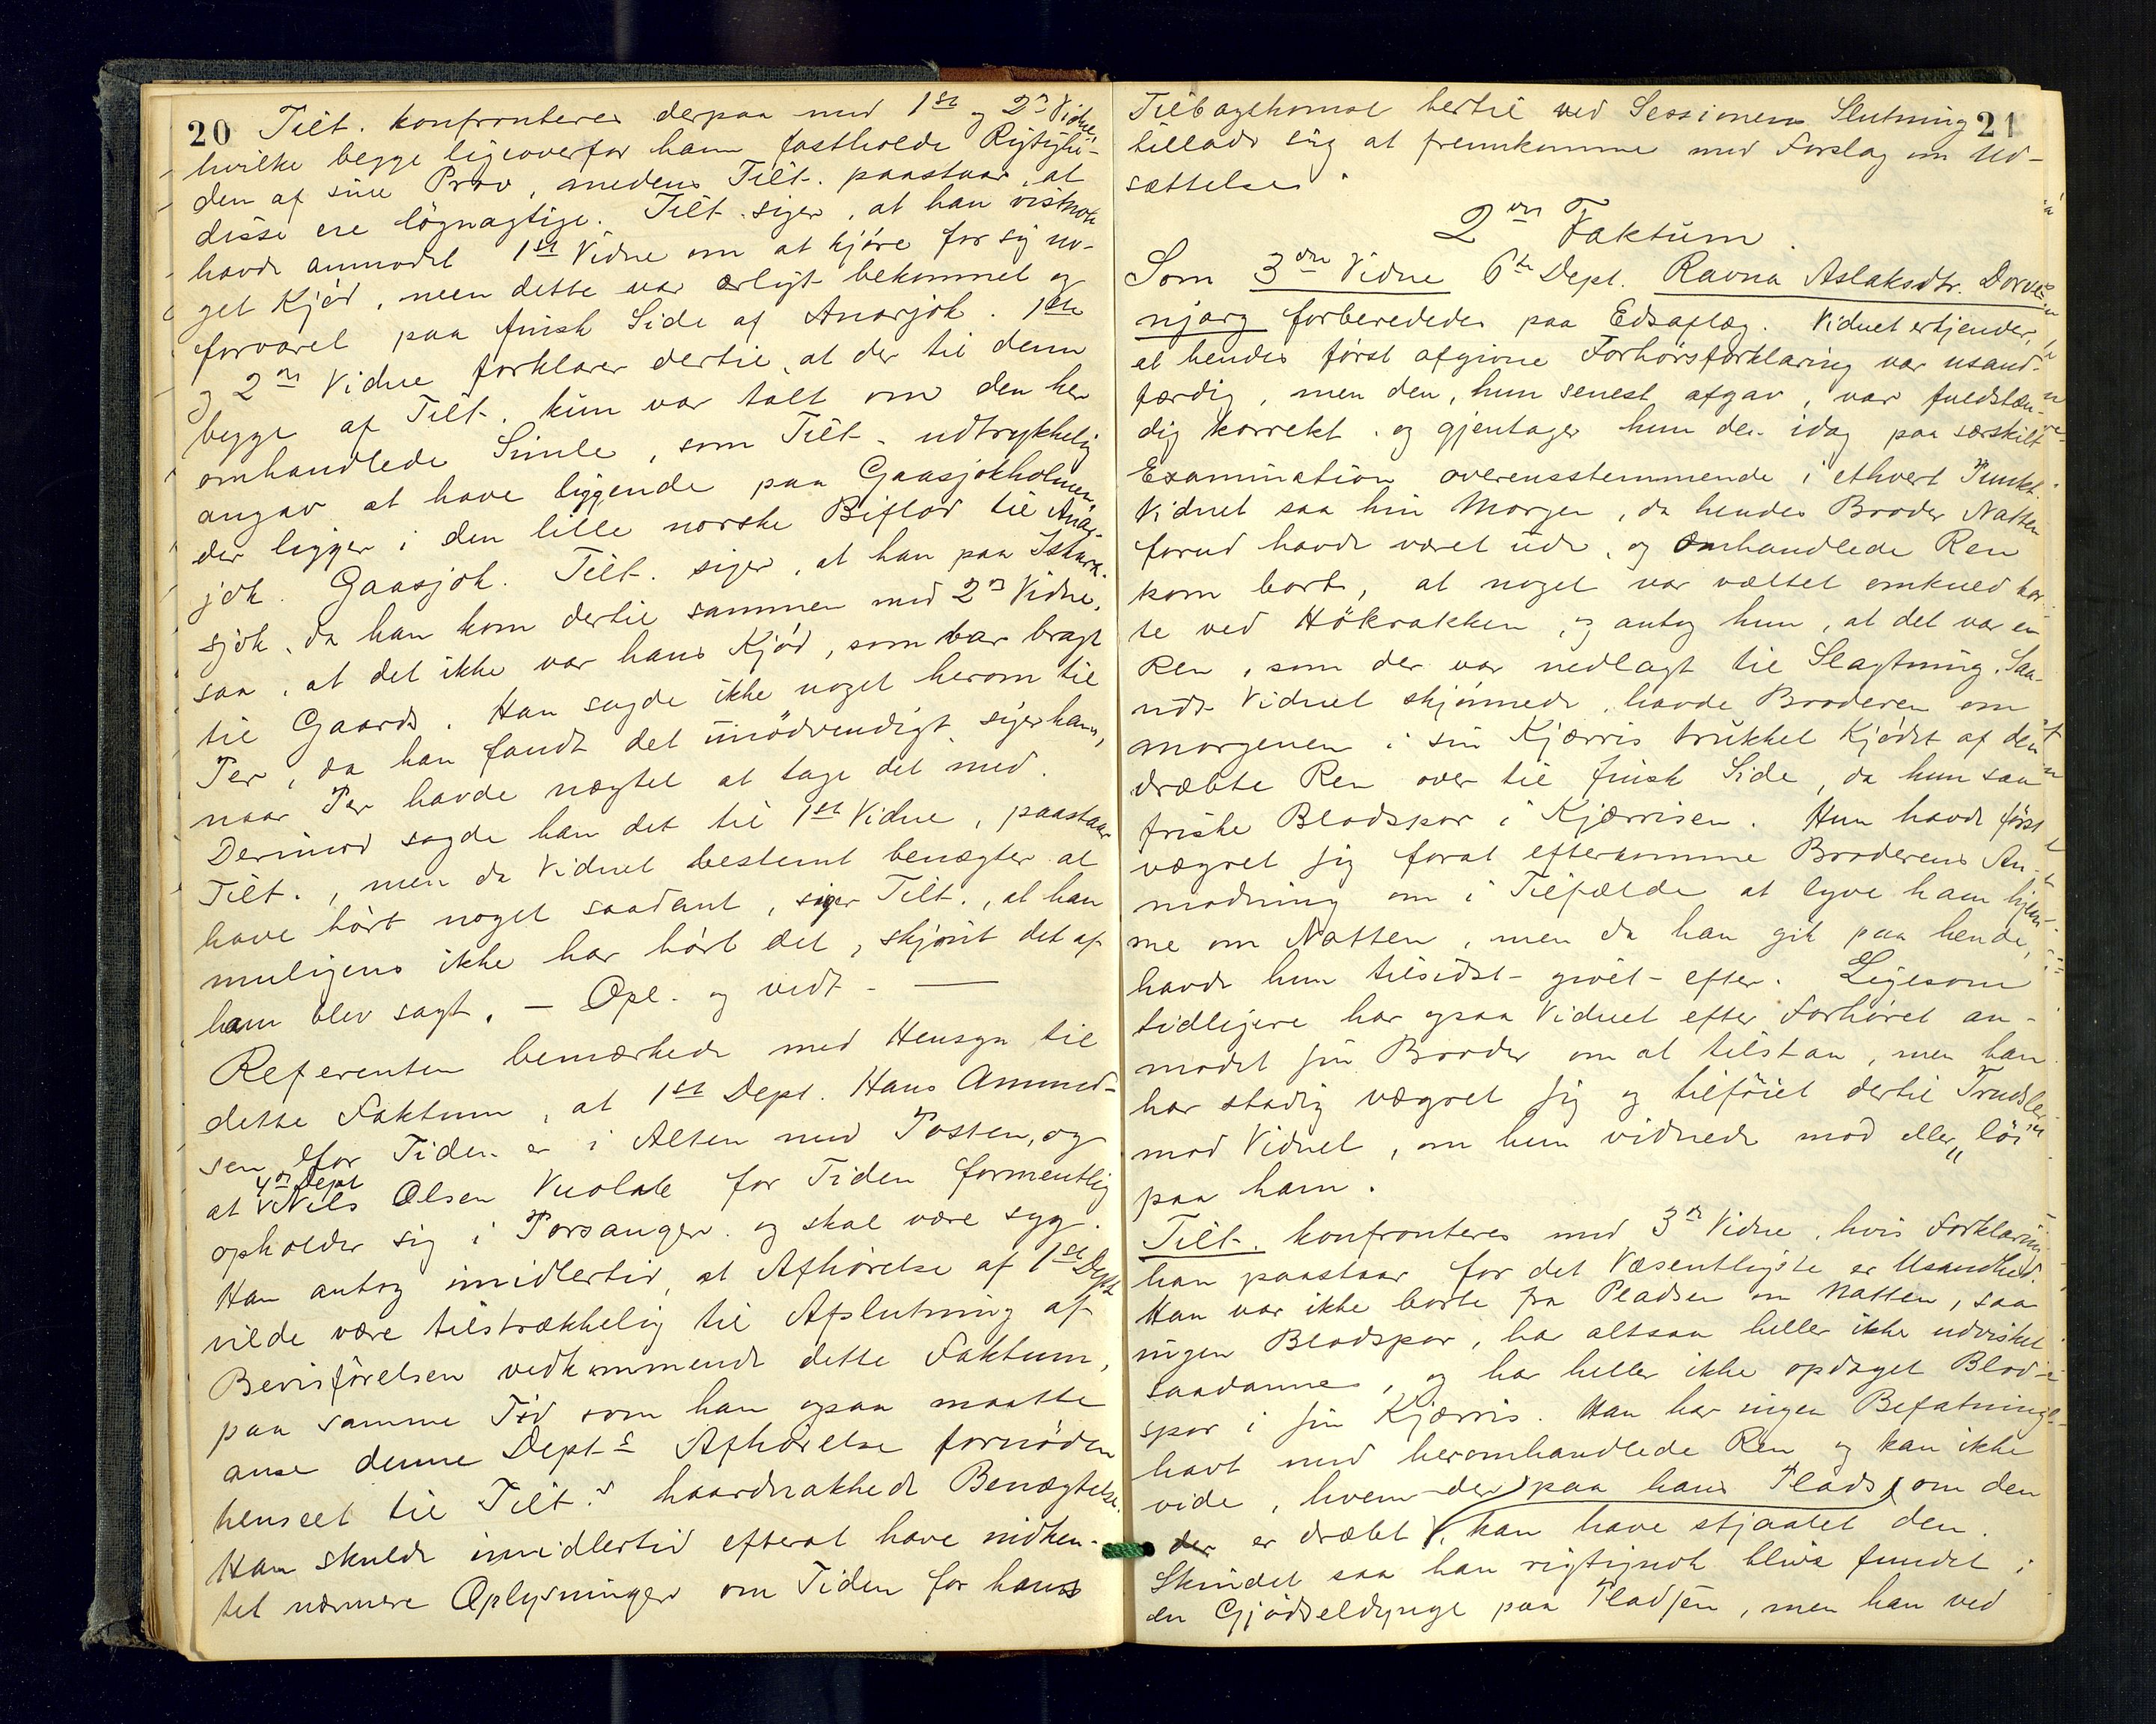 20
Tilt. konfronteres derpaa med 1ste og 2n Vidne,
hvilke begge ligeoverfor ham fastholde Rigtighe-
den af sine Prov, medens Tilt. paastaar, at
disse ere løgnagtige. Tilt. siger, at han vistnok
havde anmodet 1ste Vidne om at kjøre for sig no-
get Kjød, men dette var ærligt bekommet og
forvaret paa finsk Side af Anarjok. 1ste
og 2n Vidne forklarer dertil, at der til dem
begge af Tilt. kun var talt om den her
omhandlede Simle, som Tilt. udtrykkelig
angav at have liggende paa Gaasjokholmen,
der ligger i den lille norske Biflod til Anar-
jok. Gaasjok. Tilt. siger, at han paa Iskuras-
sjok, da han kom dertil sammen med 2n Vidne,
saa, at det ikke var hans Kjød, som var bragt
til Gaards. Han sagde ikke noget herom til
Per, da han fandt det unødvendigt, siger han,
naar Per havde nægtet at tage det med.
Derimod sagde han det til 1ste Vidne, paastaar
Tilt., men da Vidnet bestemt benægter at
have hørt noget saadant, siger Tilt., at han
muligens ikke har hørt det, skjønt det af
ham blev sagt. — Opl. og vedt. —
Referenten bemærkede med Hensyn til
dette Faktum, at 1ste Dept. Hans Ammund-
sen for Tiden er i Alten med Posten, og
4de Dept
at Nils Olsen Vuolab for Tiden formentlig
opholder sig i Porsanger og skal være syg.
Han antog imidlertid, at Afhørelse af 1ste Dept
vilde være tilstrækkelig til Afslutning af
Bevisførelsen vedkommende dette Faktum,
paa samme Tid som han ogsaa maatte
anse denne Dept.s Afhørelse fornøden
henseet til Tilt.s haardnakkede Benægtelse.
Han skulde imidlertid efterat have indhen-
tet nærmere Oplysninger om Tiden for hans
21
Tilbagekomst hertil ved Sessionens Slutning
tillade sig at fremkomme med Forslag om Ud-
sættelse.
2det Faktum.
Som 3die Vidne 6te Dept. Ravna Aslaksdtr. Dorvo-
njarg forberededes paa Edsaflæg. Vidnet erkjender,
at hendes først afgivne Forhørsforklaring var usand-
færdig, men den, hun senest afgav, var fuldstæn-
dig korrekt og gjentager hun den idag paa særskilt
Examination overensstemmende i ethvert Punkt.
Vidnet saa hin Morgen, da hendes Broder Natten
forud havde været ude, og omhandlede Ren
kom bort, at noget var væltet omkuld bor-
te ved Høkrakken, og antog hun, at det var en
Ren, som der var nedlagt til Slagtning. Saa-
vidt Vidnet skjønnede, havde Broderen om
morgenen i sin Kjærris trukket Kjødet af den
dræbte Ren over til finsk Side, da hun saa
friske Blodspor i Kjærrisen. Hun havde først
vægret sig forat efterkomme Broderens An-
modning om i Tilfælde at lyve ham hjem-
me om Natten, men da han gik paa hende,
havde hun tilsidst givet efter. Ligesom
tidligere har ogsaa Vidnet efter Forhøret an-
modet sin Broder om at tilstaa, men han
har stadig vægret sig og tilføiet dertil Trudsler
mod Vidnet, om hun vidnede mod eller „løi“
paa ham.
Tilt. konfronteres med 3n Vidne, hvis Forklaring
han paastaar for det Væsentligste er Usandhed.
Han var ikke borte fra Pladsen om Natten, saa
ingen Blodspor, har altsaa heller ikke udvisket
saadanne, og har heller ikke opdaget Blod-
spor i sin Kjærris. Han har ingen Befatning
havt med heromhandlede Ren og kan ikke
vide, hvem der paa hans Plads, om den
der er dræbt, kan have stjaalet den.
Skindet saa han rigtignok blive fundet i
en Gjødseldynge paa Pladsen, men han ved